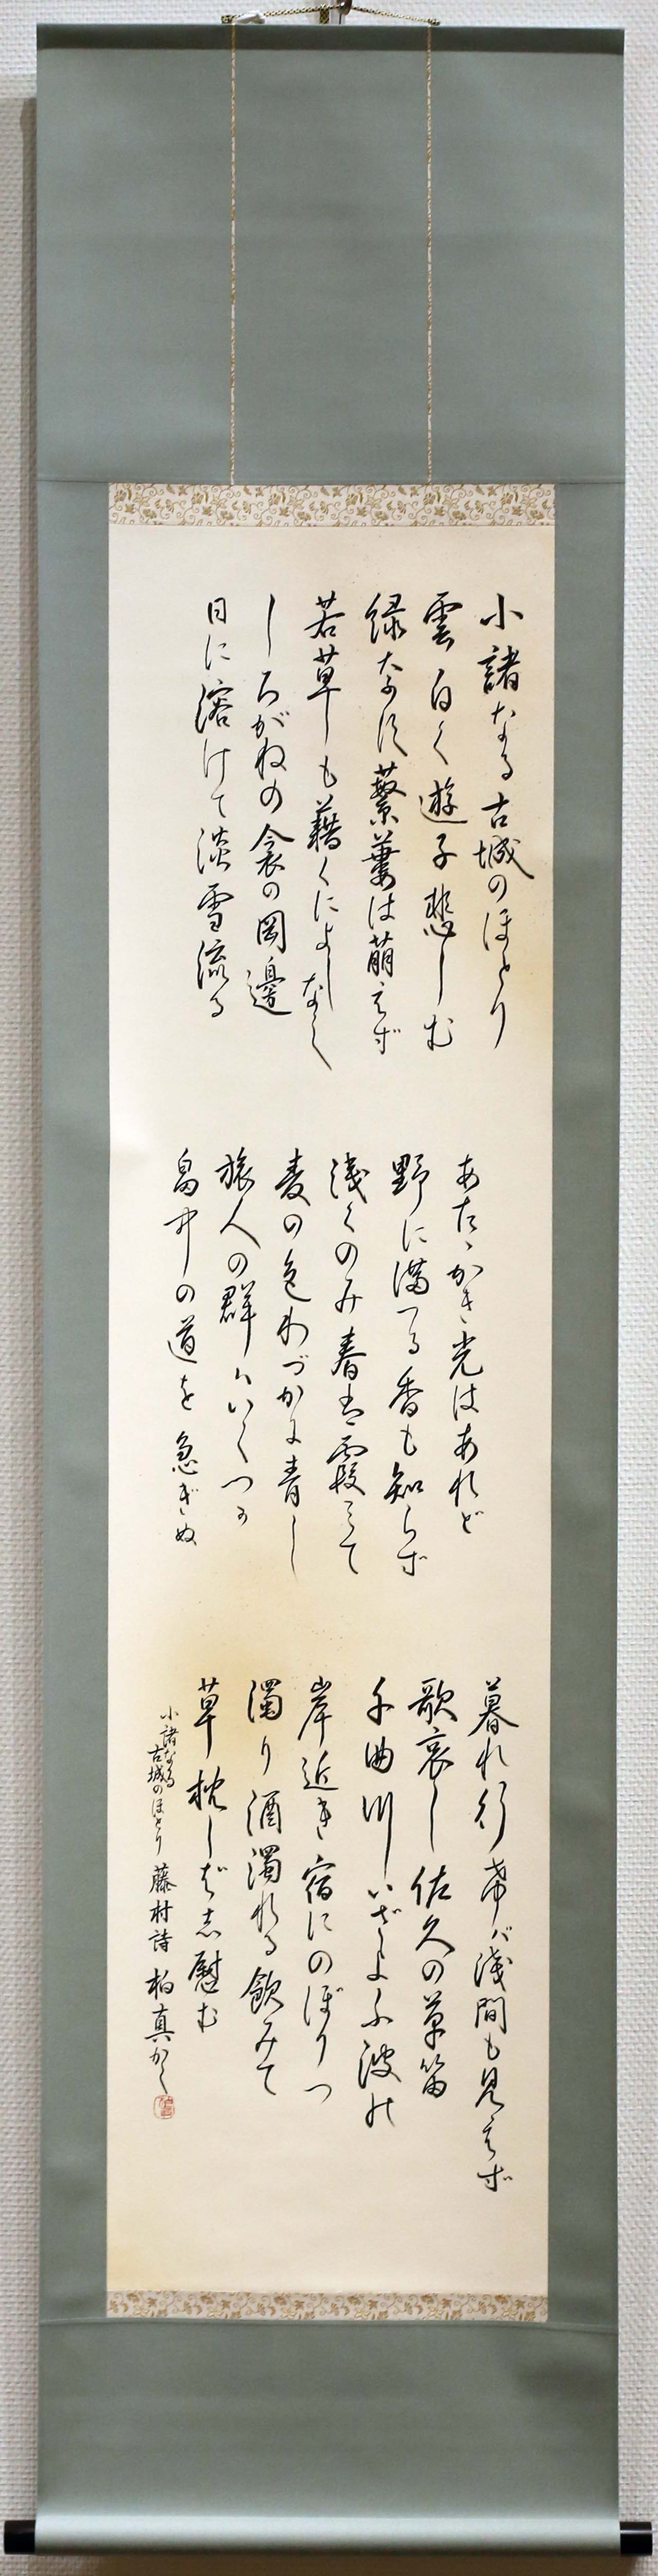 小諸なる古城のほとり
雲白く遊子悲しむ
緑なす蘩蔞は萌えず
若草も藉くによしなし
しろがねの衾の岡邊
日に溶けて淡雪流る
あたゝかき光はあれど
野に満つる香も知らず
浅くのみ春は霞みて
麦の色わづかに青し
旅人の群はいくつか
畠中の道を急ぎぬ
暮れ行けば浅間も見えず
歌哀し佐久の草笛
千曲川いざよふ波の
岸近き宿にのぼりつ
濁り酒濁れる飲みて
草枕しばし慰む
小諸なる
古城のほとり 藤村詩 柏真かく